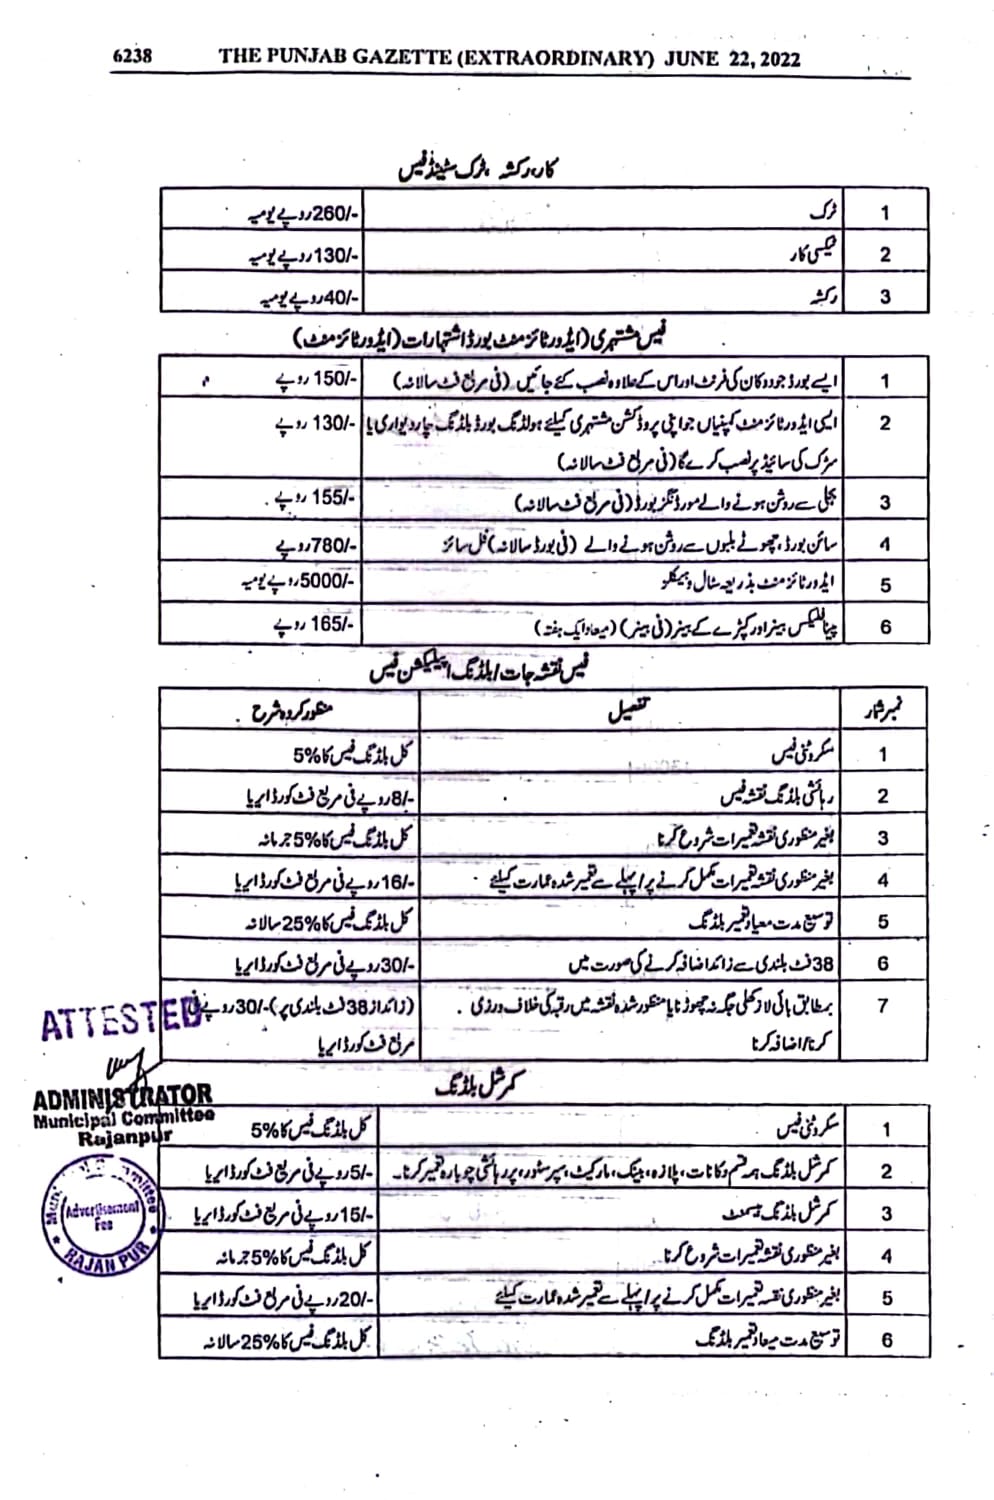 6238 THE PUNJAB GAZETTE (EXTRAORDINARY) JUNE 22, 2022
کار، رکشہ، ٹرک سٹینڈ فیس
1 ٹرک 260/- روپے یومیہ
2 ٹیکسی کار 130/- روپے یومیہ
3 رکشہ 40/- روپے یومیہ
فیس مشتہری (ایڈورٹائزمنٹ بورڈ اشتہارات (ایڈورٹائزمنٹ)
1 ایسے بورڈ جو دوکان کی فرنٹ اور اس کے علاوہ نصب کئے جائیں (فی مربع فٹ سالانہ) 150/- روپے
2 ایسی ایڈورٹائزمنٹ کمپنیاں جو اپنی پروڈکشن مشتہری کیلئے ہولڈنگ بورڈ بلڈنگ چار دیواری یا 130/- روپے
سڑک کی سائیڈ پر نصب کرے گا (فی مربع فٹ سالانہ)
3 بجلی سے روشن ہونے والے مورڈنگز بورڈ (فی مربع فٹ سالانہ) 155/- روپے
4 سائن بورڈ، چھوٹے بلبوں سے روشن ہونے والے (فی بورڈ سالانہ) فل سائز 780/- روپے
5 ایڈورٹائزمنٹ بذریعہ سٹال وہیکلز 5000/- روپے یومیہ
6 پینافلیکس بینر اور کپڑے کے بینر (فی بینر) (میعاد ایک ہفتہ) 165/- روپے
فیس نقشہ جات / بلڈنگ اپیلیکشن فیس
نمبر شمار تفصیل منظور کردہ شرح
1 سکروٹنی فیس کل بلڈنگ فیس کا 5%
2 رہائشی بلڈنگ نقشہ فیس 8/- روپے فی مربع فٹ کورڈ ایریا
3 بغیر منظوری نقشہ تعمیرات شروع کرنا کل بلڈنگ فیس کا 5% جرمانہ
4 بغیر منظوری نقشہ تعمیرات مکمل کرنے پر / پہلے سے تعمیر شدہ عمارت کیلئے 16/- روپے فی مربع فٹ کورڈ ایریا
5 توسیع مدت معیاد تعمیر بلڈنگ کل بلڈنگ فیس کا 25% سالانہ
6 38 فٹ بلندی سے زائد اضافہ کرنے کی صورت میں 30/- روپے فی مربع فٹ کورڈ ایریا
7 بمطابق بائی لاز کھلی جگہ نہ چھوڑنا یا منظور شدہ نقشہ میں رقبہ کی خلاف ورزی (زائد از 38 فٹ بلندی پر) 30/- روپے فی
کرنا / اضافہ کرنا مربع فٹ کورڈ ایریا
ATTESTED
ADMINISTRATOR
Municipal Committee
Rajanpur
کمرشل بلڈنگ
1 سکروٹنی فیس کل بلڈنگ فیس کا 5%
2 کمرشل بلڈنگ ہر قسم دکانات، پلازہ، بینک، مارکیٹ، سپر سٹور، پر رہائشی چوبارہ تعمیر کرنا۔ 5/- روپے فی مربع فٹ کورڈ ایریا
3 کمرشل بلڈنگ بیسمنٹ 15/- روپے فی مربع فٹ کورڈ ایریا
4 بغیر منظوری نقشہ تعمیرات شروع کرنا کل بلڈنگ فیس کا 5% جرمانہ
5 بغیر منظوری نقشہ تعمیرات مکمل کرنے پر / پہلے سے تعمیر شدہ عمارت کیلئے 20/- روپے فی مربع فٹ کورڈ ایریا
6 توسیع مدت میعاد تعمیر بلڈنگ کل بلڈنگ فیس کا 25% سالانہ
Advertisement
Fee
RAJAN PUR